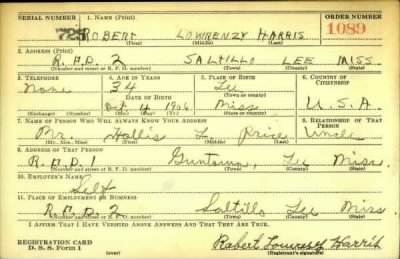 SERIAL NUMBER 1. NAME (Print) ORDER NUMBER
725 ROBERT LOWRENZY HARRIS 1089
(First) (Middle) (Last)
2. ADDRESS (Print)
R.F.D. 2 SALTILLO LEE MISS.
(Number and street or R. F. D. number) (Town) (County) (State)
3. TELEPHONE 4. AGE IN YEARS 5. PLACE OF BIRTH 6. COUNTRY OF CITIZENSHIP
None 34 Lee
DATE OF BIRTH (Town or county)
Oct 4 1906 Miss U.S.A.
(Exchange) (Number) (Mo.) (Day) (Yr.) (State or country)
7. NAME OF PERSON WHO WILL ALWAYS KNOW YOUR ADDRESS 8. RELATIONSHIP OF THAT PERSON
Mr. Hollis L. Price Uncle
(Mr., Mrs., Miss) (First) (Middle) (Last)
9. ADDRESS OF THAT PERSON
R.F.D. 1 Guntown, Lee Miss.
(Number and street or R. F. D. number) (Town) (County) (State)
10. EMPLOYER'S NAME
Self
11. PLACE OF EMPLOYMENT OR BUSINESS
R.F.D. 2 Saltillo Lee Miss.
(Number and street or R. F. D. number) (Town) (County) (State)
I AFFIRM THAT I HAVE VERIFIED ABOVE ANSWERS AND THAT THEY ARE TRUE.
REGISTRATION CARD
D. S. S. Form 1 (over) Robert Lowrenzy Harris
(Registrant's signature)